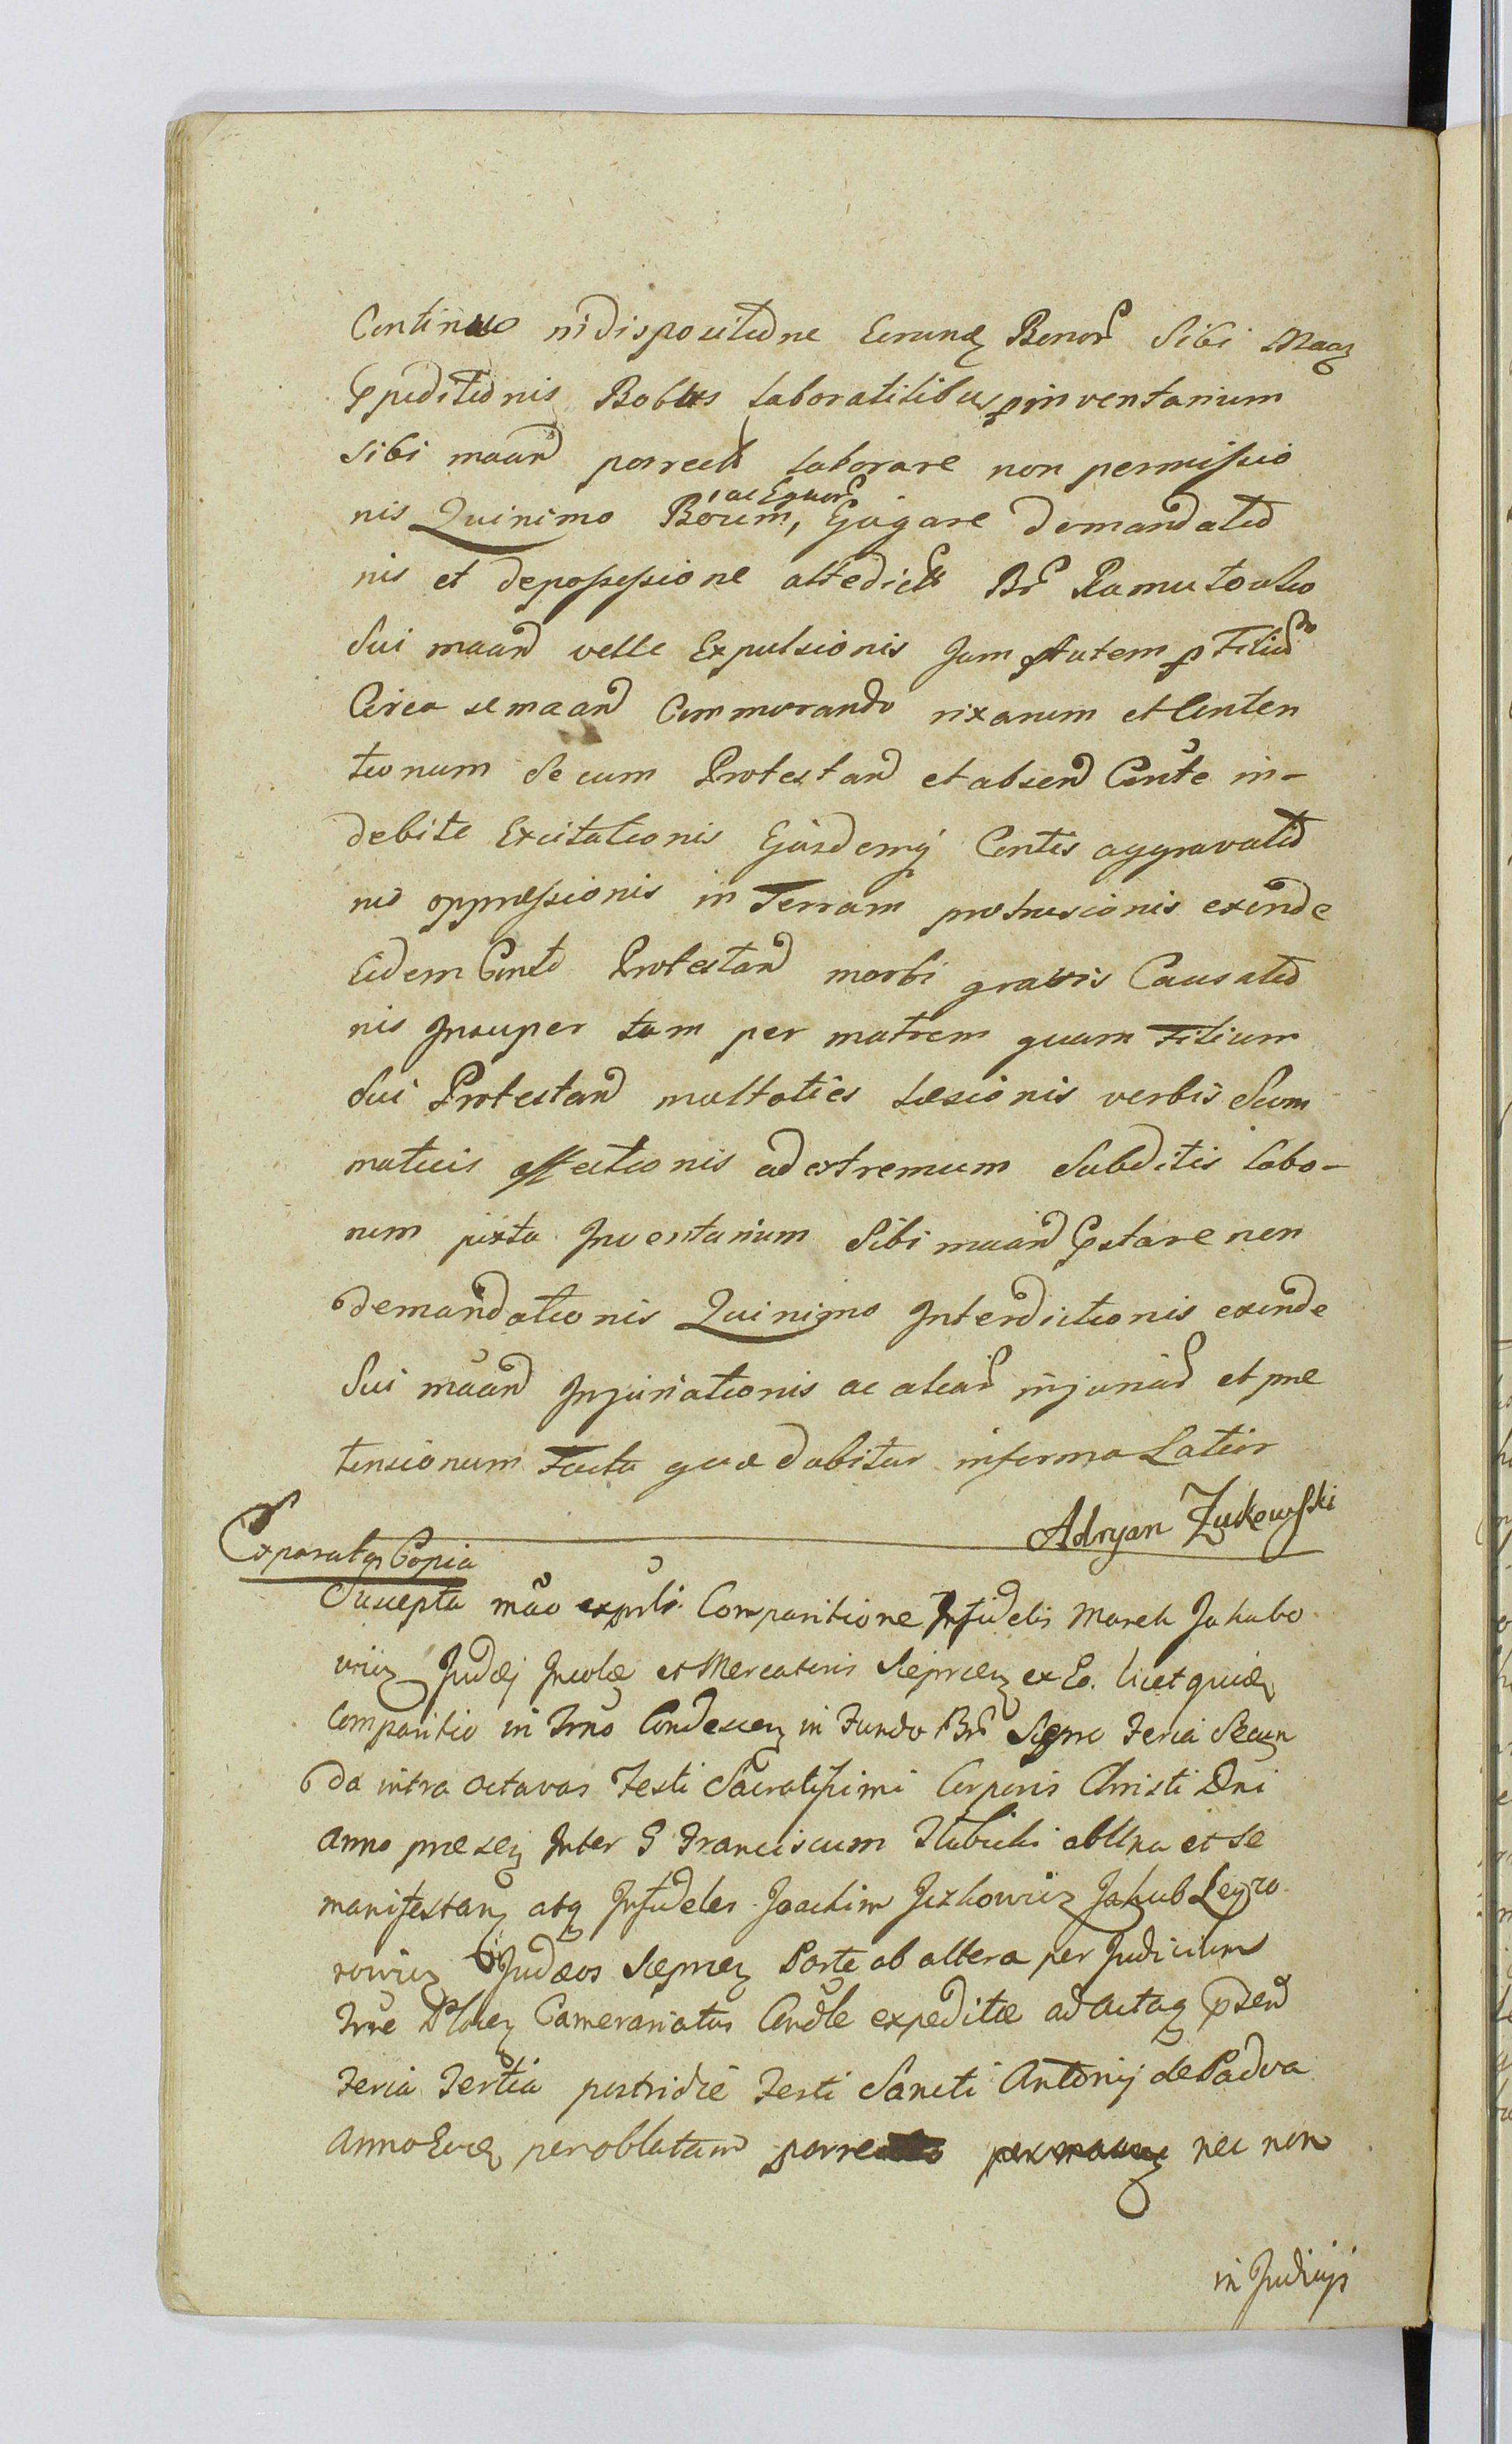 Continuo in dispositione Eorund Bonor Sibi Maan
Expeditionis Bobus laboratilibus p inventarium
sibi maand porrect laborare non permissio
nis Quinimo Boum, ac Equor Ejagare demandatio
nis et depossessione altedict Br Ramutowko
Sui maand velle Expulsionis Jam p Autem p Filiu
Circa se maand Commorando rixarum et Conten
tionum Secum Protestand et absend Cente in-
debite Excitationis Ejusdemq Centis aggravatio
nis oppressionis in Terram protrusionis exinde
Eidem Centi Protestand morbi gravis Causatio
nis Insuper tam per matrem quam Filium
Sui Protestand multoties Læsionis verbis Sum
maticis affectionis ad extremum Subditis labo-
rum juxta Inventarium Sibi maand Pstare non
demandationis Quinimo Interdictionis exinde
Sui maand Injuriationis ac aliar injuriar et præ
tensionum Facta quæ dabitur in forma Latior
Adryan Żukowski
Exparata Copia
Suscepta mão Comparitione Infidelis Marek Jakubo
wicz Judæj Incolæ et Mercatoris Sieprcen ex Eo. licet quidem
Comparitio in Trno Condescen in Fundo Br Siepre Feria Secun
da intra octavas Festi Sacratissimi Corporis Christi Dni
Anno præsen Inter G Franciscum Ilubicki ab Una et se
manifestan atq Infideles Joachim Jezkowicz Jakub Leyzo
rowicz Judæos Sieprcen Parte ab altera per Judicium
Trre Plocen Camerariatus Cendle expeditæ ad Actaq psend
Feria Tertia postridie Festi Sancti Antonij de Padva
Anno Eod per oblatam porrecta per maan nec non
in Judicijs